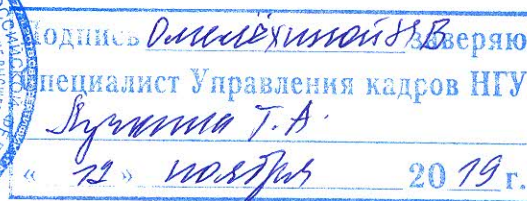 Подпись Омелёхиной Н.В. заверяю
Специалист Управления кадров НГУ
Т.А.
« 12 » ноября 2019 г.